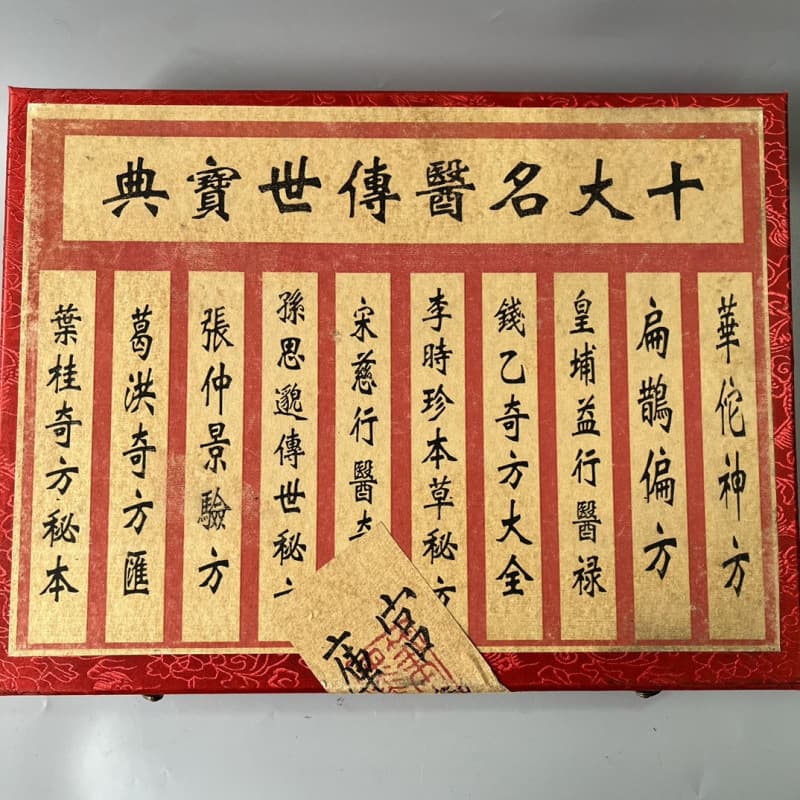 十大名醫傳世寶典
華佗神方
扁鵲偏方
皇埔益行醫禄
錢乙奇方大全
李時珍本草秘方
宋慈行醫
孫思邈傳世秘
張仲景驗方
葛洪奇方匯
葉桂奇方秘本
宫
庫